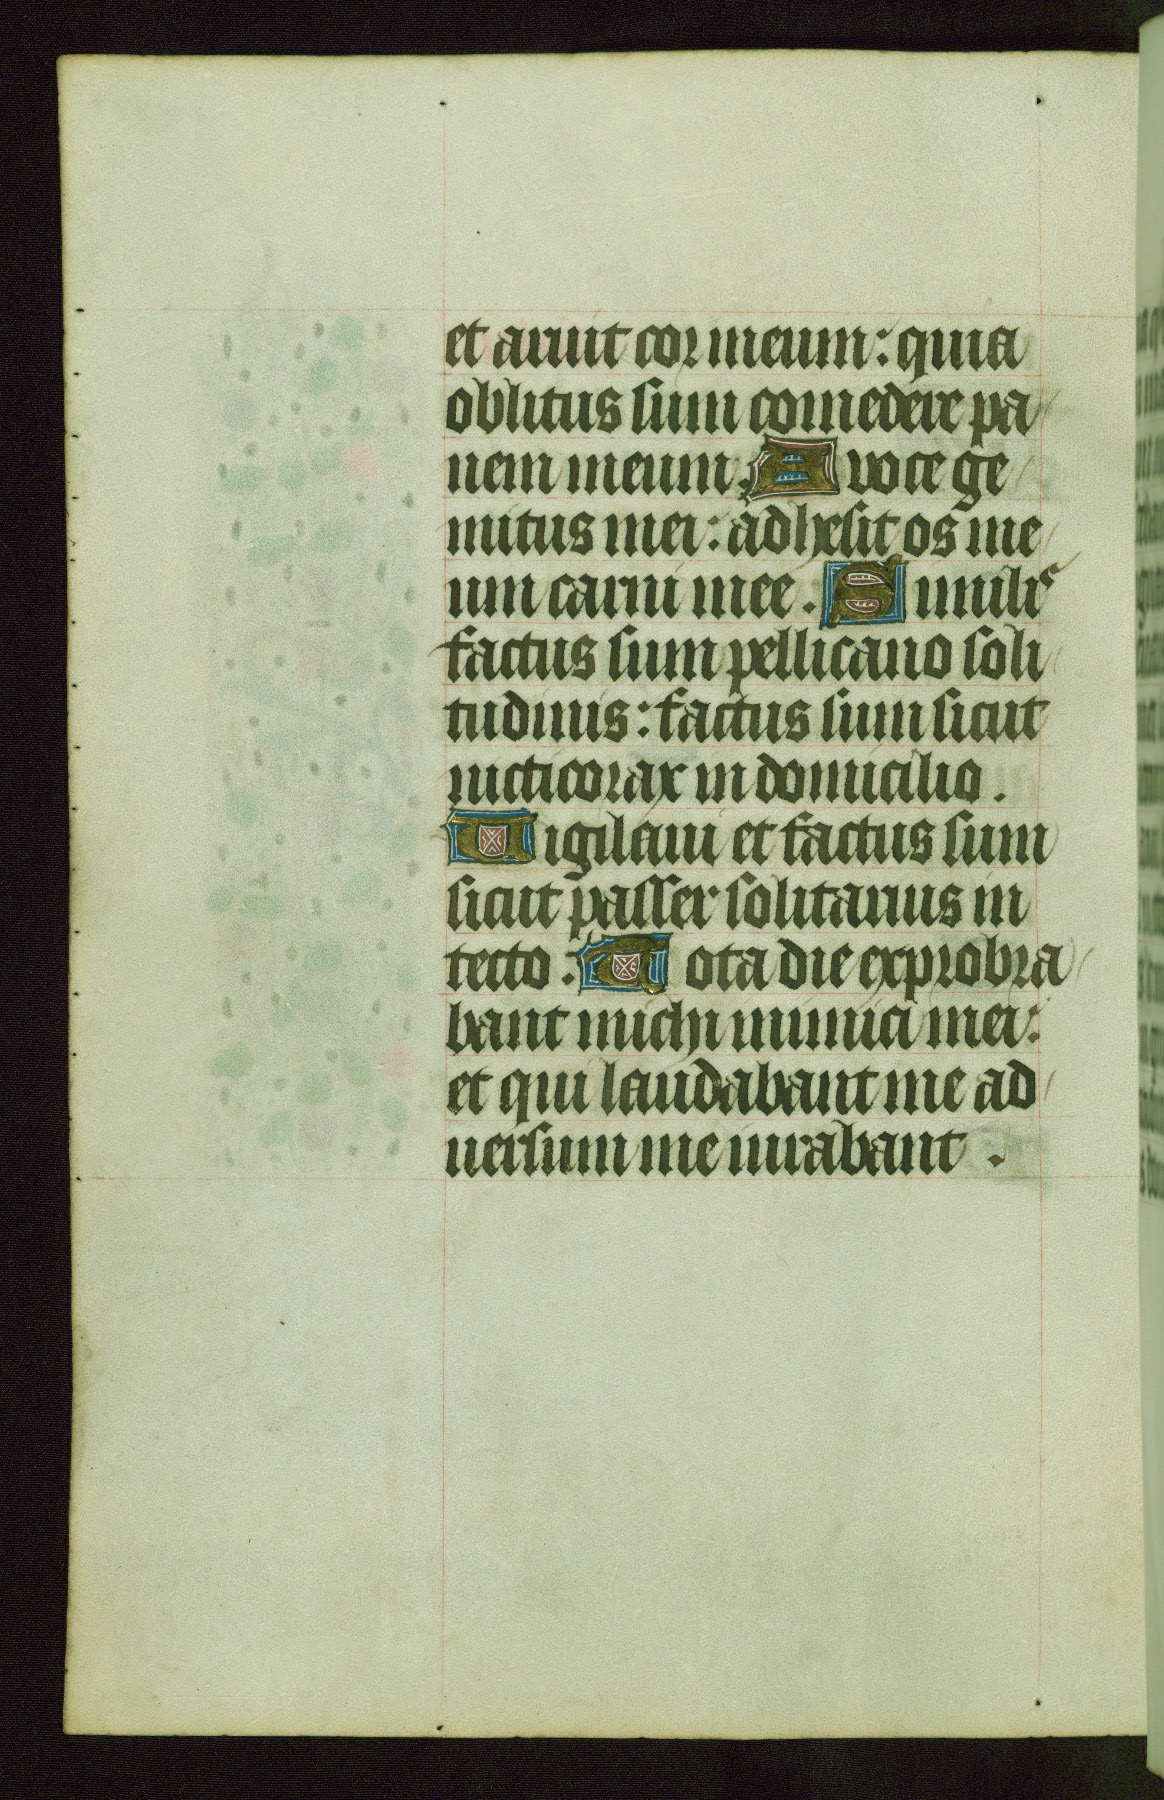 et aruit cor meum : quia
oblitus sum comedere pa
nem meum. A voce ge
mitus mei : adhesit os me
um carni mee. Similis
factus sum pellicano soli
tudinis : factus sum sicut
nicticorax in domicilio.
Uigilaui et factus sum
sicut passer solitarius in
tecto. Tota die exprobra
bant michi inimici mei :
et qui laudabant me ad
uersum me iurabant.